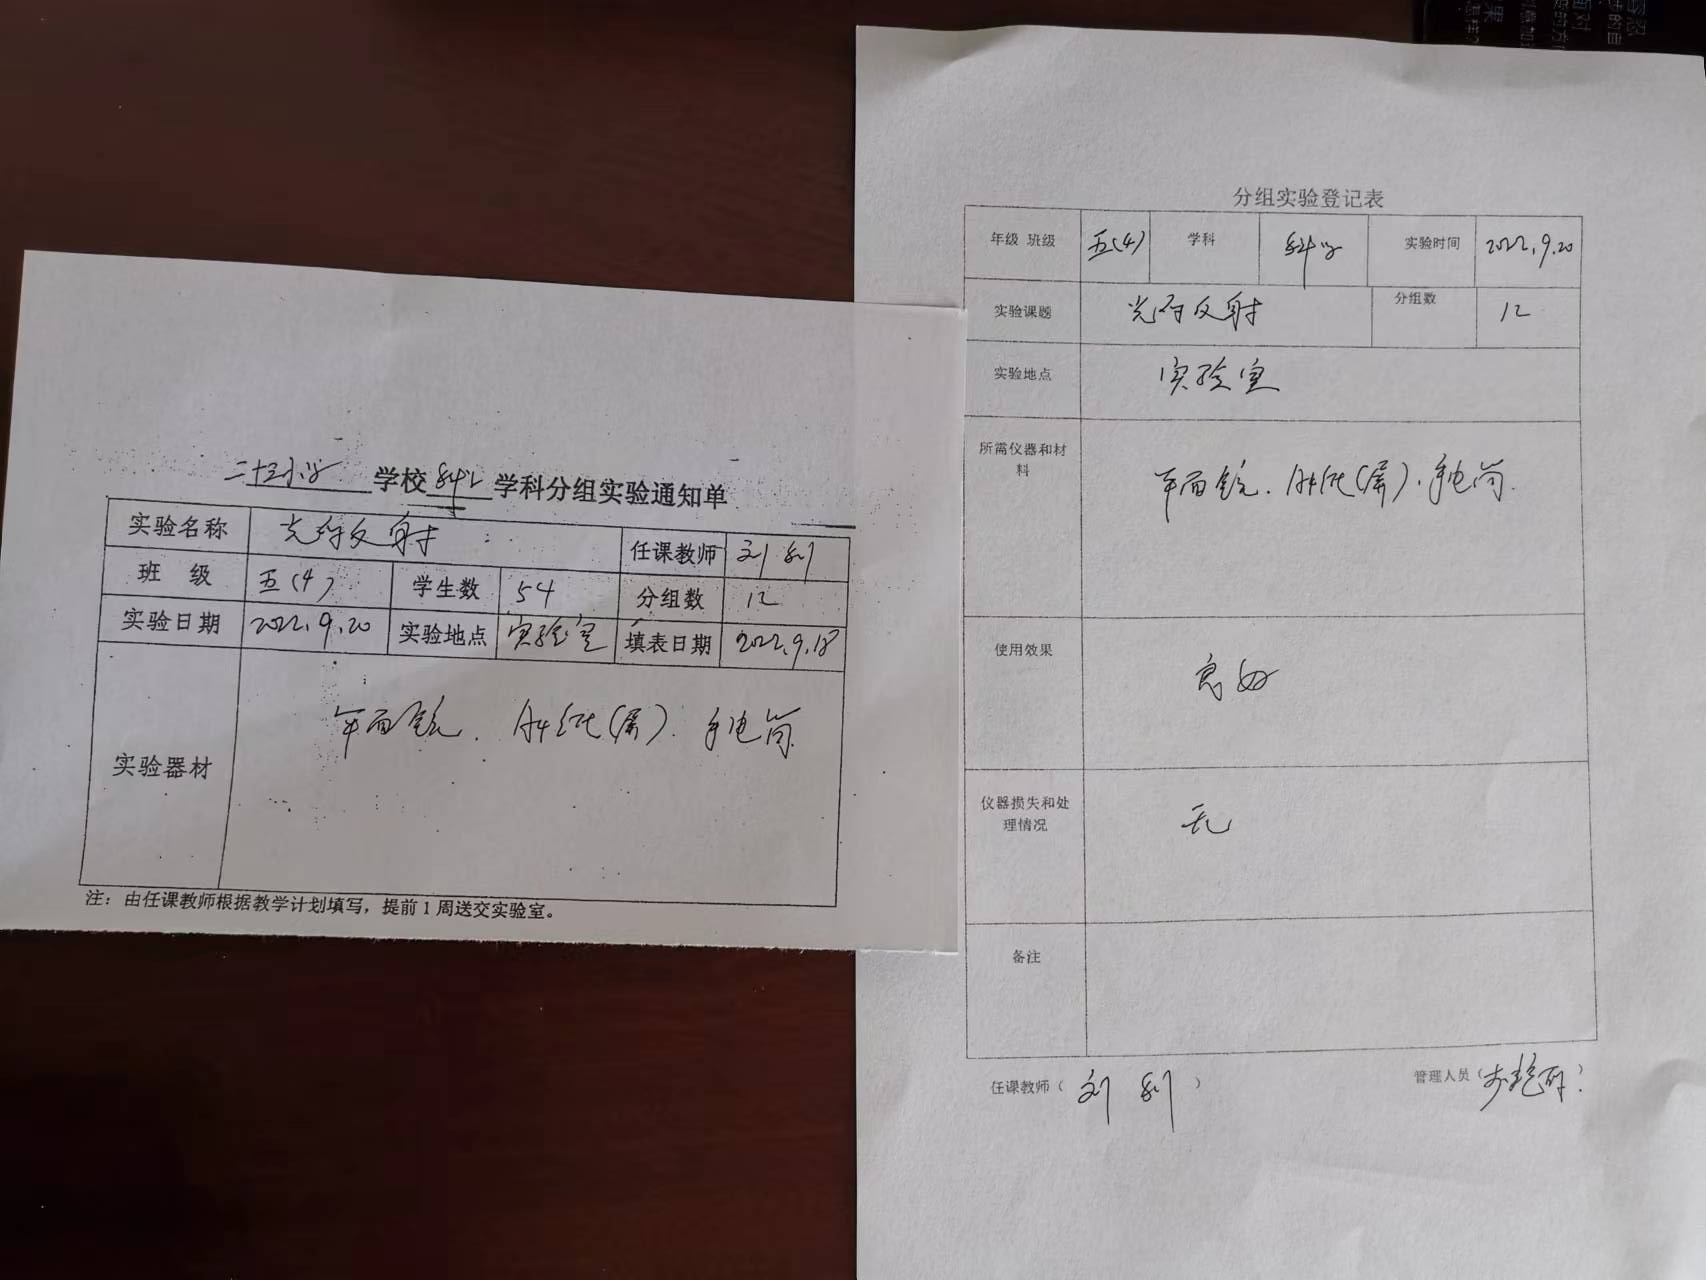 二十三小学 学校 科学 学科分组实验通知单
实验名称 光的反射 任课教师 刘利
班 级 五(4) 学生数 54 分组数 12
实验日期 2022.9.20 实验地点 实验室 填表日期 2022.9.18
实验器材 平面镜、A4纸(屏)、手电筒
注：由任课教师根据教学计划填写，提前1周送交实验室。
分组实验登记表
年级 班级 五(4) 学科 科学 实验时间 2022.9.20
实验课题 光的反射 分组数 12
实验地点 实验室
所需仪器和材料 平面镜、A4纸(屏)、手电筒
使用效果 良好
仪器损失和处理情况 无
备注
任课教师（刘利） 管理人员（ ）